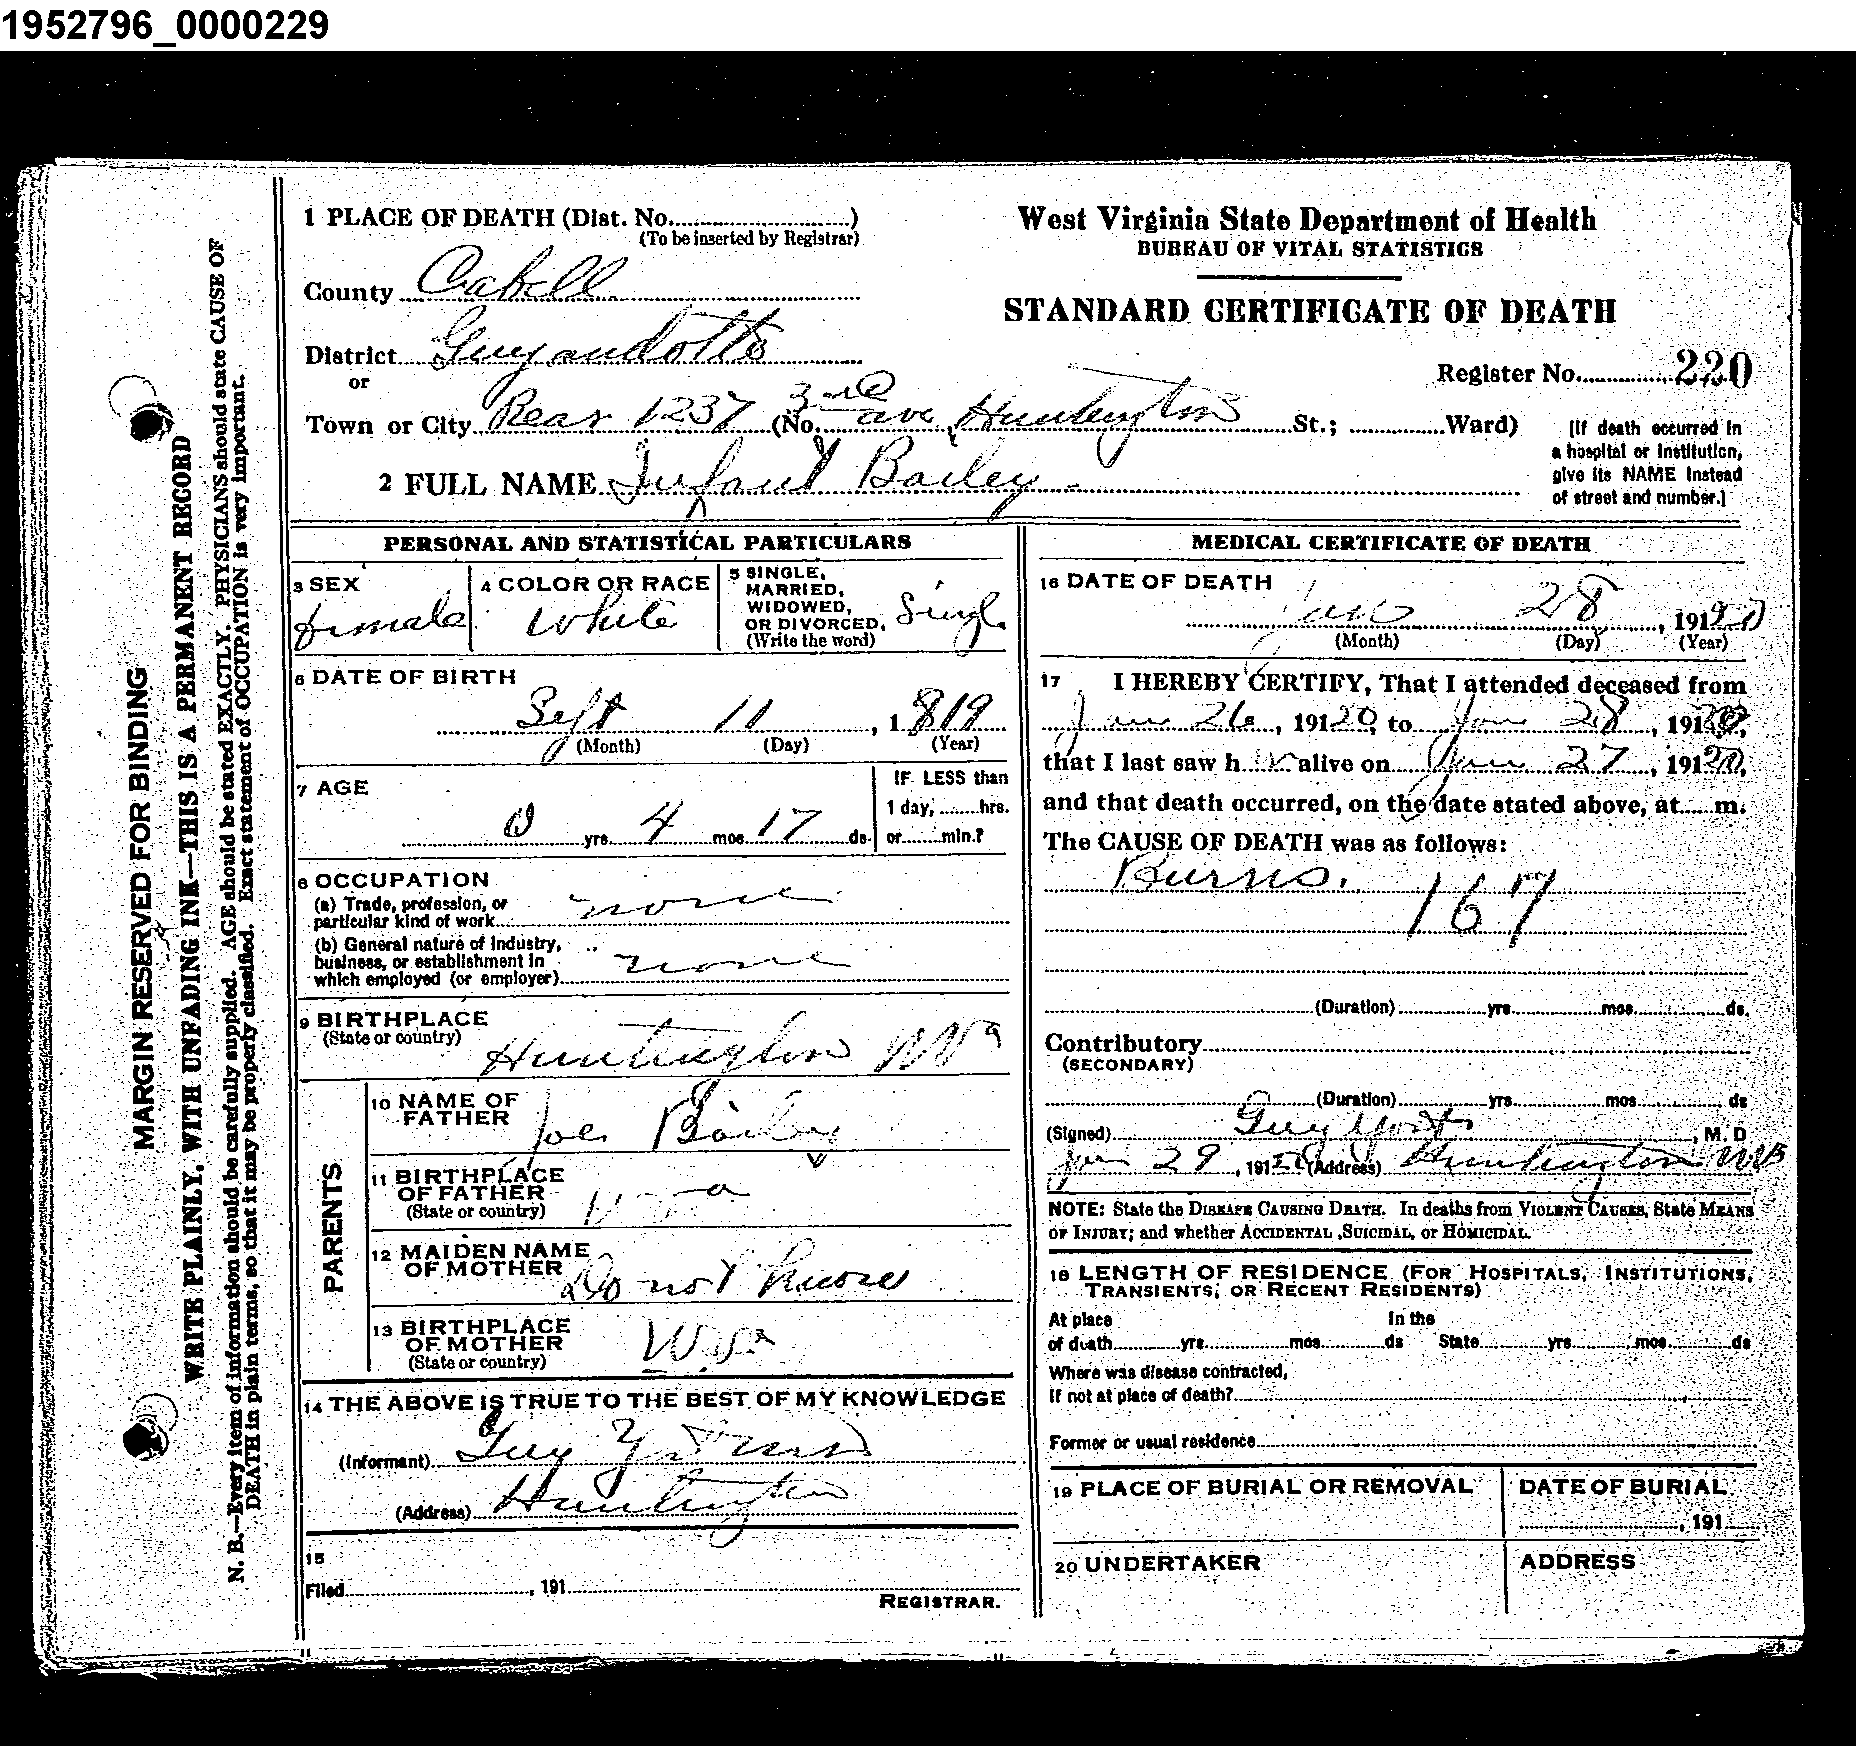 1952796_0000229
1 PLACE OF DEATH (Dist. No. )
(To be inserted by Registrar)
County Cabell
District Guyandotte
or
Town or City Rear 1237 (No. 3rd ave, Huntington St.; Ward)
2 FULL NAME Infant Bailey
West Virginia State Department of Health
BUREAU OF VITAL STATISTICS
STANDARD CERTIFICATE OF DEATH
Register No. 220
[If death occurred in
a hospital or institution,
give its NAME instead
of street and number.]
MARGIN RESERVED FOR BINDING
WRITE PLAINLY, WITH UNFADING INK—THIS IS A PERMANENT RECORD
N. B.—Every item of information should be carefully supplied. AGE should be stated EXACTLY. PHYSICIANS should state CAUSE OF
DEATH in plain terms, so that it may be properly classified. Exact statement of OCCUPATION is very important.
PERSONAL AND STATISTICAL PARTICULARS
3 SEX
female
4 COLOR OR RACE
White
5 SINGLE,
MARRIED,
WIDOWED,
OR DIVORCED,
(Write the word)
Singl
6 DATE OF BIRTH
Sept 11, 1819
(Month) (Day) (Year)
7 AGE
0 yrs. 4 mos 17 ds.
IF LESS than
1 day, hrs.
or min.?
8 OCCUPATION
(a) Trade, profession, or
particular kind of work none
(b) General nature of Industry,
business, or establishment in
which employed (or employer) none
9 BIRTHPLACE
(State or country)
Huntington W Va
PARENTS
10 NAME OF
FATHER Joe Bailey
11 BIRTHPLACE
OF FATHER
(State or country)
12 MAIDEN NAME
OF MOTHER Do not know
13 BIRTHPLACE
OF MOTHER
(State or country) W. Va
14 THE ABOVE IS TRUE TO THE BEST OF MY KNOWLEDGE
(Informant) Guy
(Address) Huntington
15
Filed , 191
REGISTRAR.
MEDICAL CERTIFICATE OF DEATH
16 DATE OF DEATH
Jan 28, 19120
(Month) (Day) (Year)
17 I HEREBY CERTIFY, That I attended deceased from
Jan 26, 19120, to Jan 28, 19120,
that I last saw h er alive on Jan 27, 19120,
and that death occurred, on the date stated above, at m.
The CAUSE OF DEATH was as follows:
Burns. 167
(Duration) yrs mos ds.
Contributory
(SECONDARY)
(Duration) yrs mos ds
(Signed) Guy , M. D
Jan 29, 19120 (Address) Huntington W Va
NOTE: State the DISEASE CAUSING DEATH. In deaths from VIOLENT CAUSES, State MEANS
OF INJURY; and whether ACCIDENTAL ,SUICIDAL, or HOMICIDAL.
18 LENGTH OF RESIDENCE (FOR HOSPITALS, INSTITUTIONS,
TRANSIENTS, OR RECENT RESIDENTS)
At place In the
of death yrs. mos. ds State yrs. mos. ds
Where was disease contracted,
If not at place of death?
Former or usual residence
19 PLACE OF BURIAL OR REMOVAL
DATE OF BURIAL
, 191
20 UNDERTAKER
ADDRESS